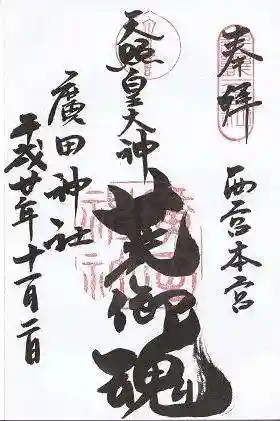 奉拝
西宮本宮
天照皇大神
荒御魂
廣田神社
平成廿年十一月二日